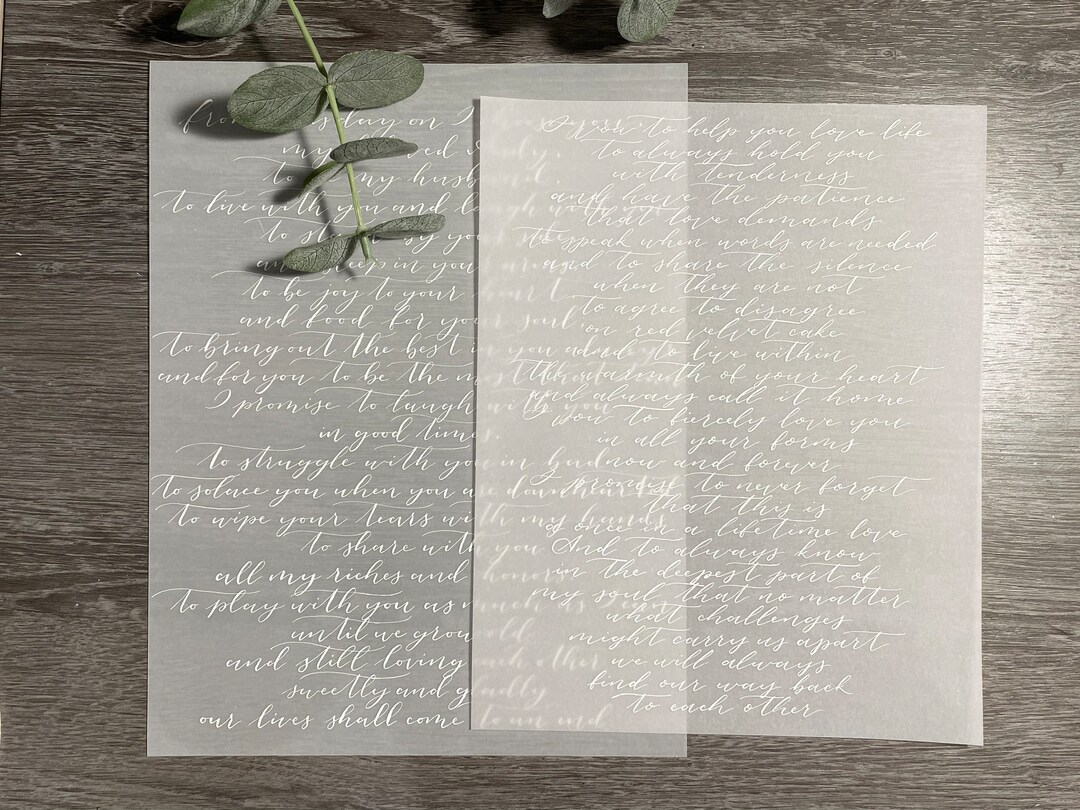 day on I
my
to my husband
to live with you and laugh with you
to by your
in your
to be joy to your heart
and food for your soul
to bring out the best in you
and for you to be the most
I promise to laugh with you
in good times.
to struggle with you in bad
to solace you when you are downhearted
to wipe your tears with my hands
to share with you
all my riches and honors
to play with you as much as I can
until we grow old
and still loving each other
sweetly and gladly
our lives shall come to an end
you to help you love life
to always hold you
with tenderness
and have the patience
that love demands
to speak when words are needed
and to share the silence
when they are not
to agree to disagree
on red velvet cake
and to live within
the warmth of your heart
and always call it home
you to fiercely love you
in all your forms
now and forever
I promise to never forget
that this is
a once in a lifetime love
And to always know
in the deepest part of
my soul that no matter
what challenges
might carry us apart
we will always
find our way back
to each other